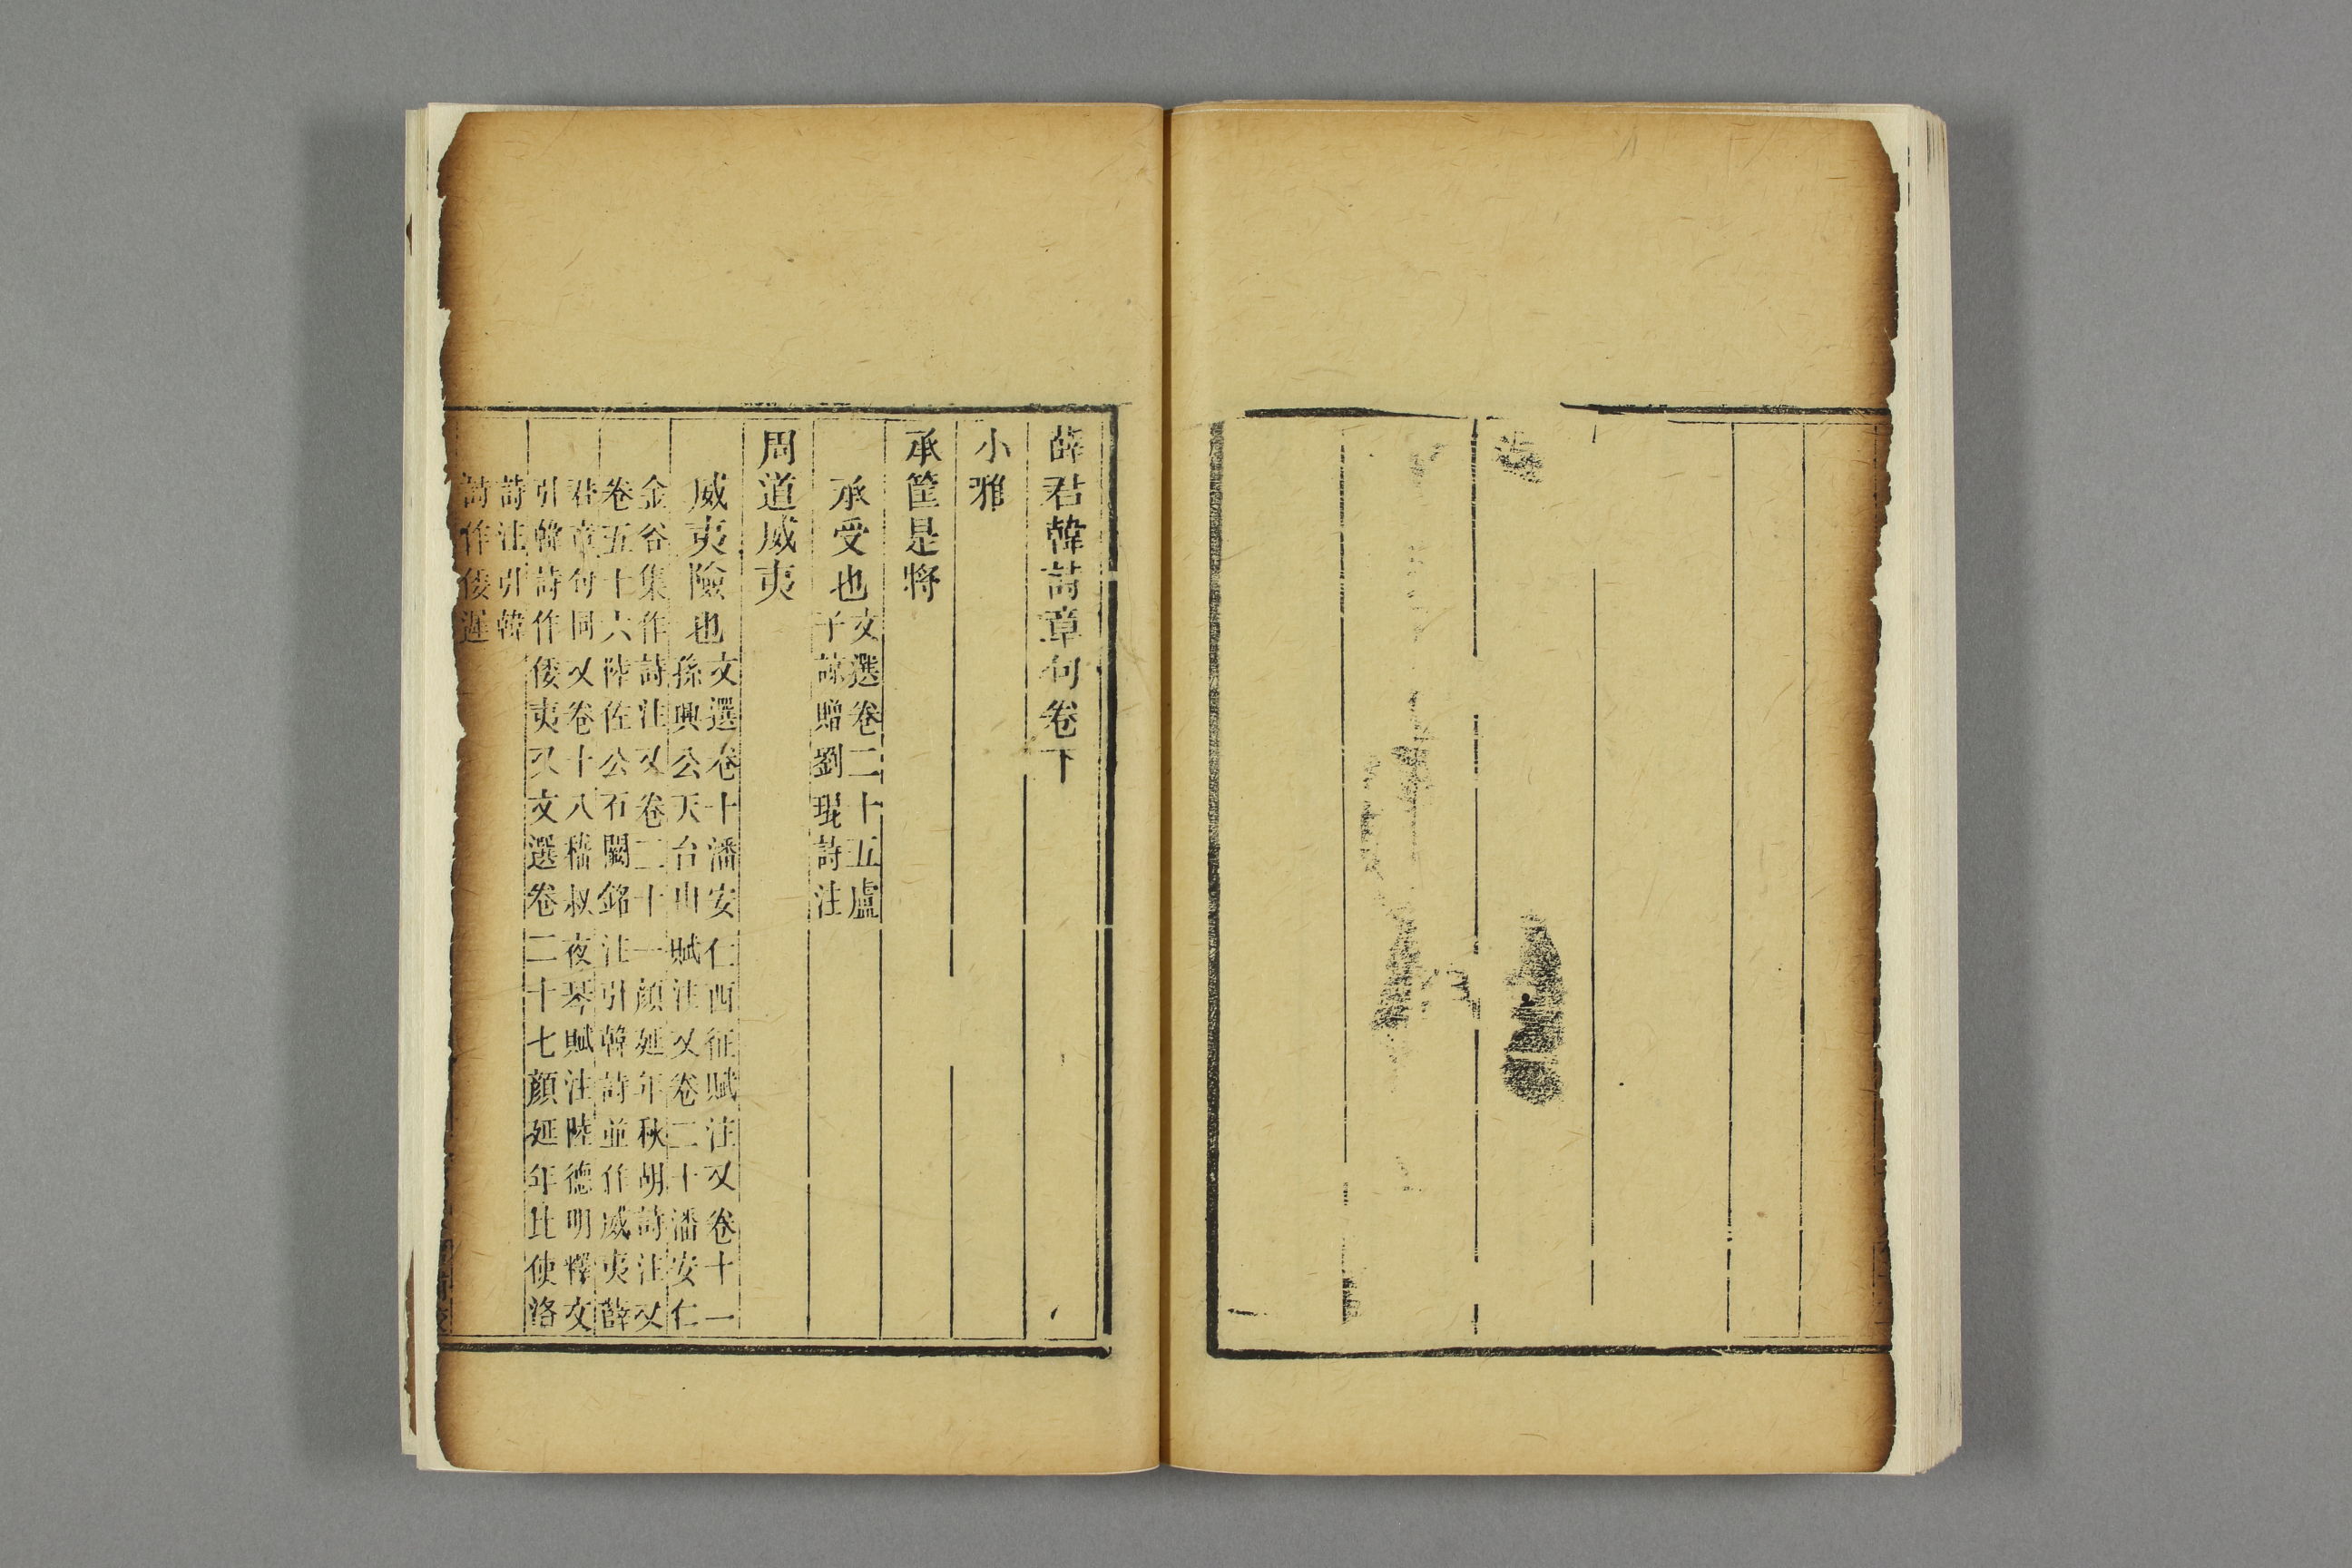 薛君韓詩章句卷下
小雅
承筐是將
承受也
文選卷二十五盧
子諒贈劉琨詩注
周道威夷
威夷險也
文選卷十潘安仁西征賦注又卷十一
孫興公天台山賦注又卷二十潘安仁
金谷集作詩注又卷二十一顔延年秋胡詩注又
卷五十六陸佐公石闕銘注引韓詩並作威夷薛
君章句同又卷十八嵇叔夜琴賦注陸德明釋文
引韓詩作倭夷又文選卷二十七顔延年北使洛
詩注引韓
詩作倭遲